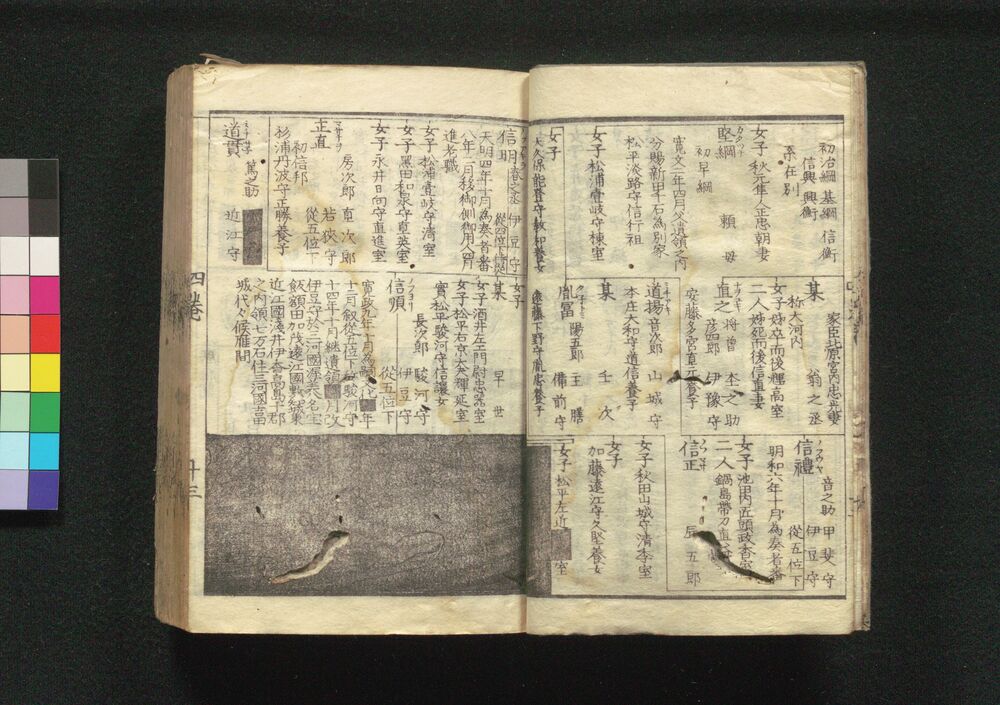 初治綱 基綱 信衡
信興 興衡
系在別
女子 秋元隼人正忠朝妻
堅綱 頼母
初早綱
寛文二年四月父遺領之内
分賜新田千石為別家
松平淡路守信行祖
女子 松浦壹岐守棟室
女子
大久保能登守教和養女
家臣北原宮内忠光妻
某 翁之丞
称大河内
女子 姉卒而後輝高室
二人 姉死而後信直妻
直之 将曽 杢之助
彦四郎 伊豫守
安藤多宮直元養子
道揚 音次郎 山城守
本庄大和守道信養子
某 壬次
胤冨 陽五郎 主膳
備前守
遠藤下野守胤忠養子
信禮 音之助 甲斐守
伊豆守
從五位下
明和六年十月為奏者番
女子 池田内匠頭政香室
二人 鍋島帯刀直
信正 辰五郎
女子 秋田山城守清季室
女子
加藤遠江守久堅養女
女子 松平左近 室
信明 春之丞 伊豆守
從四位下侍從
天明四年十月為奏者番
八年二月移御側御用人四月
進老職
女子 松浦壹岐守清室
女子 黒田和泉守直英室
女子 永井日向守直進室
正直 房次郎 直次郎
初信邦 若狭守
從五位下
杉浦丹波守正勝養子
道貫 萬之助
近江守
女子
某 早世
女子 酒井左エ門尉忠器室
女子 松平右京大夫輝延室
實松平駿河守信譲女
信順 長次郎 駿河守
伊豆守
從五位下
寛政九年十月為嫡 文化 年
十二月叙從五位下号駿河守
十四年十月継遺領 月改
伊豆守於三河國渥美八名宝
飯額田加茂遠江國敷知城東
近江國淺井伊香高島八郡
之内領七万石住三河國吉田
城代々候雁間
四巻
廾三